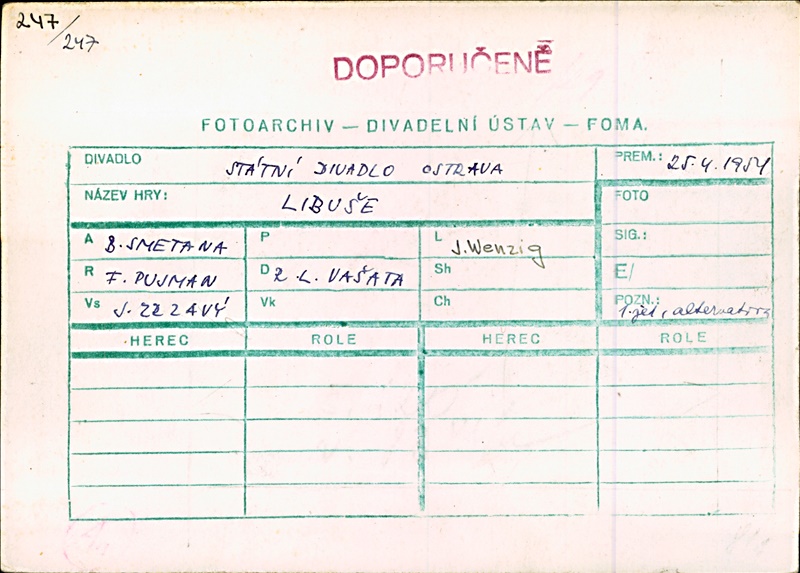 247/247
DOPORUČENĚ
FOTOARCHIV — DIVADELNÍ ÚSTAV — FOMA.
DIVADLO STÁTNÍ DIVADLO OSTRAVA PREM.: 25.4.1954
NÁZEV HRY: LIBUŠE FOTO
A B. SMETANA P L J. Wenzig SIG.:
R F. PUJMAN D R. L. VAŠATA Sh E/
Vs J. ZRZAVÝ Vk Ch POZN.: 1. jed., alternativy
HEREC ROLE HEREC ROLE